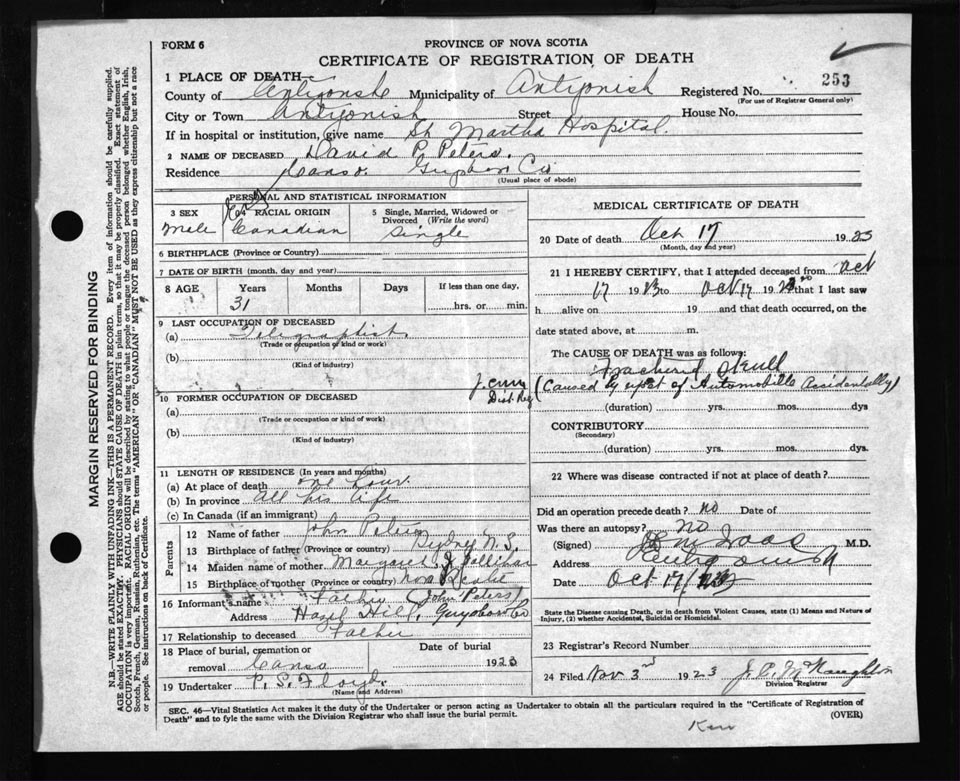 FORM 6
PROVINCE OF NOVA SCOTIA
CERTIFICATE OF REGISTRATION OF DEATH
253
1 PLACE OF DEATH—
County of Antigonish Municipality of Antigonish Registered No.
(For use of Registrar General only)
City or Town Antigonish Street House No.
If in hospital or institution, give name St Martha Hospital.
2 NAME OF DECEASED David P. Peters.
Residence Canso. Guysboro Co
(Usual place of abode)
PERSONAL AND STATISTICAL INFORMATION
3 SEX 4 RACIAL ORIGIN 5 Single, Married, Widowed or Divorced (Write the word)
Male Canadian Single
6 BIRTHPLACE (Province or Country)
7 DATE OF BIRTH (month, day and year)
8 AGE Years Months Days If less than one day.
31 hrs. or min.
9 LAST OCCUPATION OF DECEASED
(a) Telegraphist.
(Trade or occupation or kind or work)
(b)
(Kind of industry)
10 FORMER OCCUPATION OF DECEASED
(a)
(Trade or occupation or kind of work)
(b)
(Kind of industry)
11 LENGTH OF RESIDENCE (In years and months)
(a) At place of death one hour.
(b) In province all his life
(c) In Canada (if an immigrant)
Parents
12 Name of father John Peters
13 Birthplace of father (Province or Country) Sydney N.S.
14 Maiden name of mother Margaret J.
15 Birthplace of mother (Province or Country) Nova Scotia
16 Informant's name Father (John Peters)
Address Hazel Hill, Guysboro Co
17 Relationship to deceased Father
18 Place of burial, cremation or removal Canso Date of burial 1923
19 Undertaker P. S. Floyd.
(Name and Address)
MEDICAL CERTIFICATE OF DEATH
20 Date of death Oct 17 1923
(Month, day and year)
21 I HEREBY CERTIFY, that I attended deceased from Oct
17 1923 to Oct 17 1923 that I last saw
h alive on 19 and that death occurred, on the
date stated above, at m.
The CAUSE OF DEATH was as follows:
Fractured Skull
(Caused by upset of Automobille Accidentally)
Dist Reg
(duration) yrs. mos. dys
CONTRIBUTORY
(Secondary)
(duration) yrs. mos. dys.
22 Where was disease contracted if not at place of death?
Did an operation precede death? no Date of
Was there an autopsy? No
(Signed) M.D.
Address Antigonish
Date Oct 17/
State the Disease causing Death, or in death from Violent Causes, state (1) Means and Nature of Injury, (2) whether Accidental, Suicidal or Homicidal.
23 Registrar's Record Number
24 Filed Nov 3rd 1923 J. P. McNaughton
Division Registrar
SEC. 46—Vital Statistics Act makes it the duty of the Undertaker or person acting as Undertaker to obtain all the particulars required in the "Certificate of Registration of
Death" and to fyle the same with the Division Registrar who shall issue the burial permit.
(OVER)
MARGIN RESERVED FOR BINDING
N.B.—WRITE PLAINLY WITH UNFADING INK—THIS IS A PERMANENT RECORD. Every item of information should be carefully supplied.
AGE should be stated EXACTLY. PHYSICIANS should STATE CAUSE OF DEATH in plain terms, so that it may be properly classified. Exact statement of
OCCUPATION is very important. RACIAL ORIGIN will be described by stating to what people or tongue the deceased person belonged whether English, Irish,
Scotch, French, German, Russian, Ruthenian, etc. The terms "AMERICAN" OR "CANADIAN" MUST NOT BE USED as they express citizenship but not a race
or people. See instructions on back of Certificate.